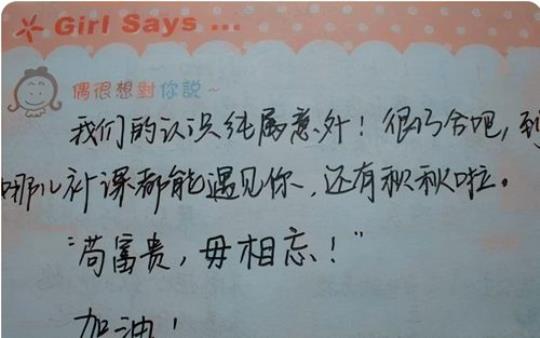 Girl Says ...
偶很想對你説~
我们的认识纯属意外！很巧合吧，到
哪儿补课都能遇见你，还有秋秋啦。
“苟富贵，毋相忘！”
加油！